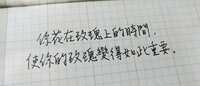 你花在玫瑰上的時間，
使你的玫瑰變得如此重要。